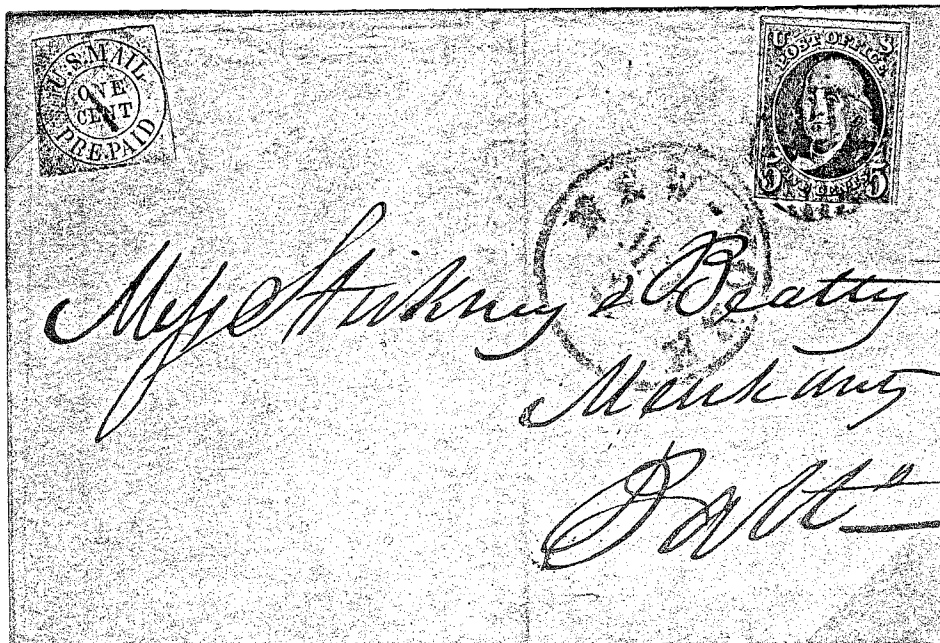 U.S. MAIL
ONE
CENT
PRE-PAID
U S
POST OFFICE
5 FIVE CENTS 5
NEW-YORK
Mess Stickney & Beatty
Merchants
Balto